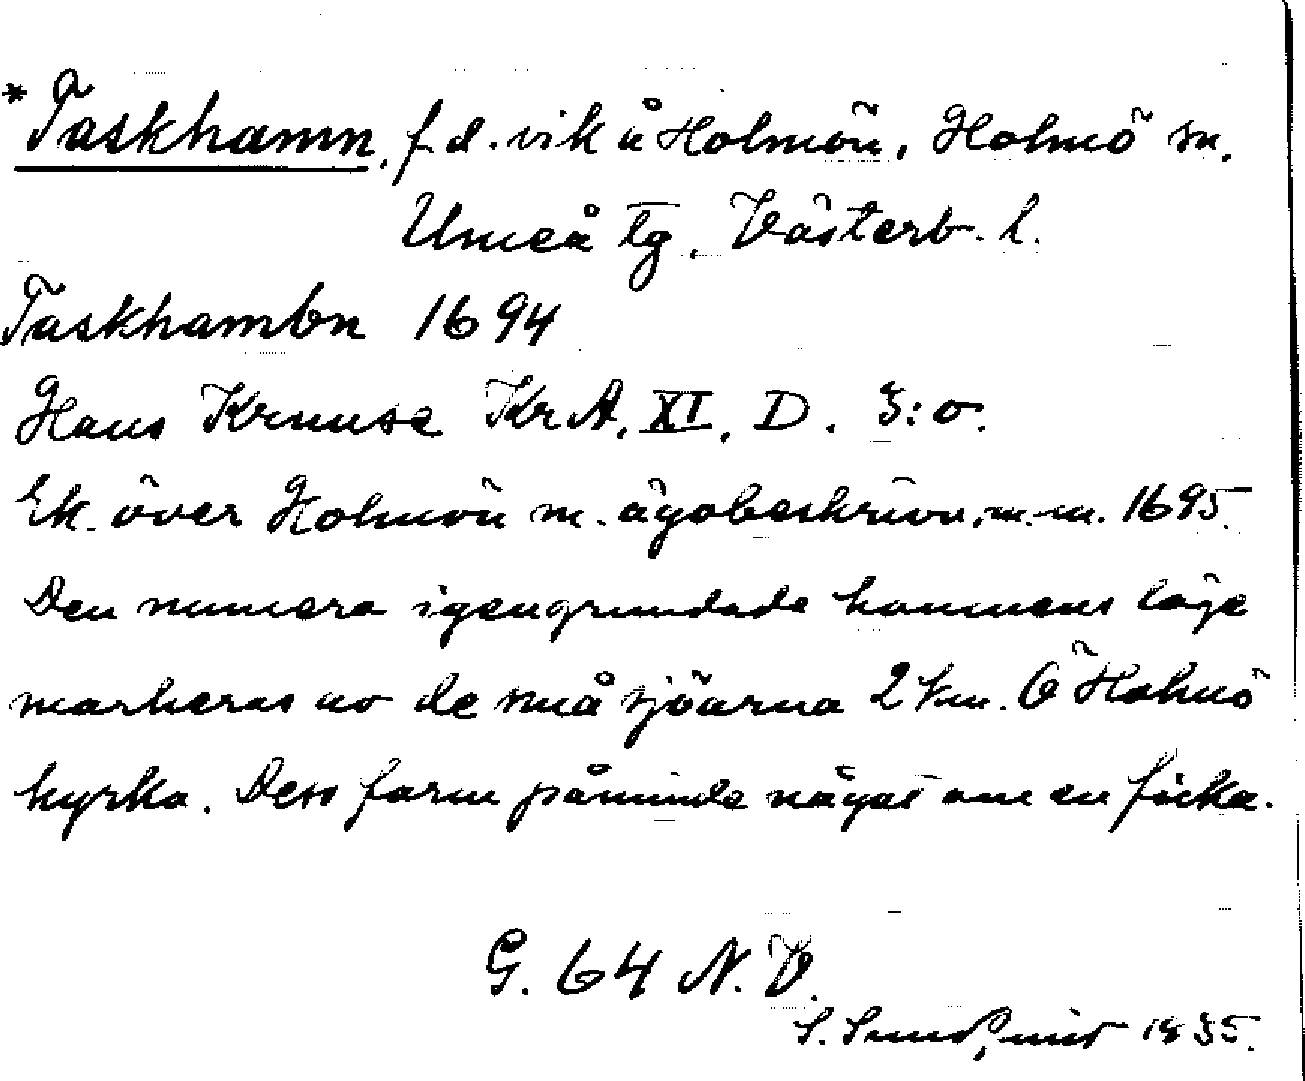 *Taskhamn, f.d. vik å Holmön, Holmö sn,
Umeå tg, Västerb. l.
Taskhambn 1694
Hans Kruuse KrA, XI, D. 3:o.
Ek. över Holmön m. ägobeskrivn. m.m. 1695.
Den numera igengrundade hamnens läge
markeras av de små sjöarna 2 km. Ö Holmö
kyrka. Dess form påminde något om en ficka.
G. 64 N.V.
1935.